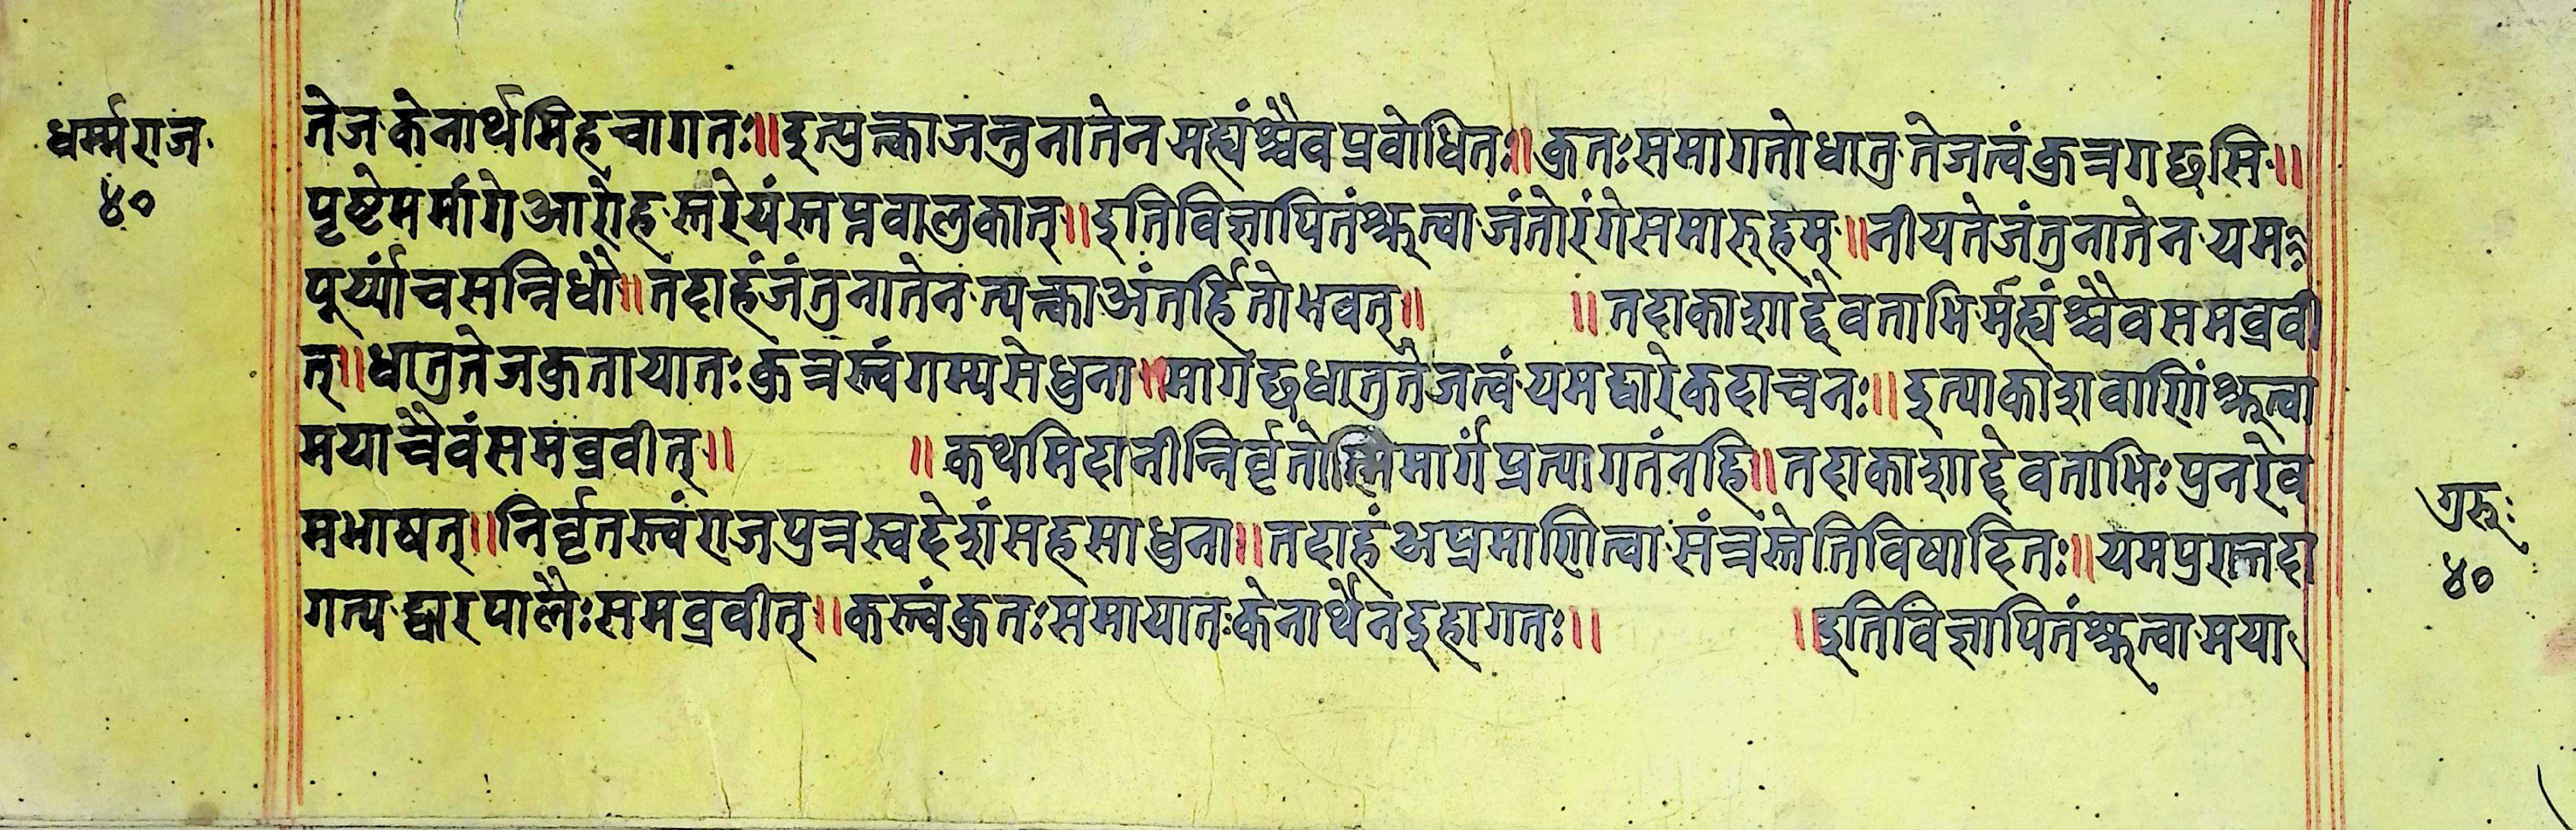 धर्म्मराज
४०
तेज केनार्थमिहचागतः॥इत्युत्काजन्तुनातेनमह्यंश्चैवप्रवोधितः॥कुतःसमागतोधातुतेजत्वंकुत्रगछसि॥
पृष्टेमर्मागेआरोहस्तरेयंस्तप्नवालुकात्॥इतिविज्ञापितंश्रुत्वाजंतोरंगेसमारुहम्॥नीयतेजंतुनातेनयम
पूर्य्यांचसन्निधौ॥तदाहंजंतुनातेनत्यत्काअंतर्हितोभवत्॥ ॥तदाकाशाद्दैवताभिर्मह्यंश्चैवसमव्रवी
त्॥धातुतेजकुतायातःकुत्रस्त्वंगम्यसेधुना॥मागछधातुतेजत्वंयमद्वारेकदाचनः॥इत्याकाशवाणिंश्रुत्वा
मयाचैवंसमंव्रवीत्॥ ॥कथमिदानीन्निर्वृतोस्मिमार्गंप्रत्यागतंनहि॥तदाकाशाद्देवताभिःपुनरेव
मभाषत्॥निर्वृतस्त्वंराजपुत्रस्वदेशंसहसाधुना॥तदाहंअप्रमाणित्वासंत्रस्तेतिविषादितः॥यमपुरास्तदा
गत्यद्वारपालैःसमव्रवीत्॥कस्त्वंकुतःसमायातःकेनार्थेनइहागतः॥ ॥इतिविज्ञापितंश्रुत्वामया
गुरुः
४०